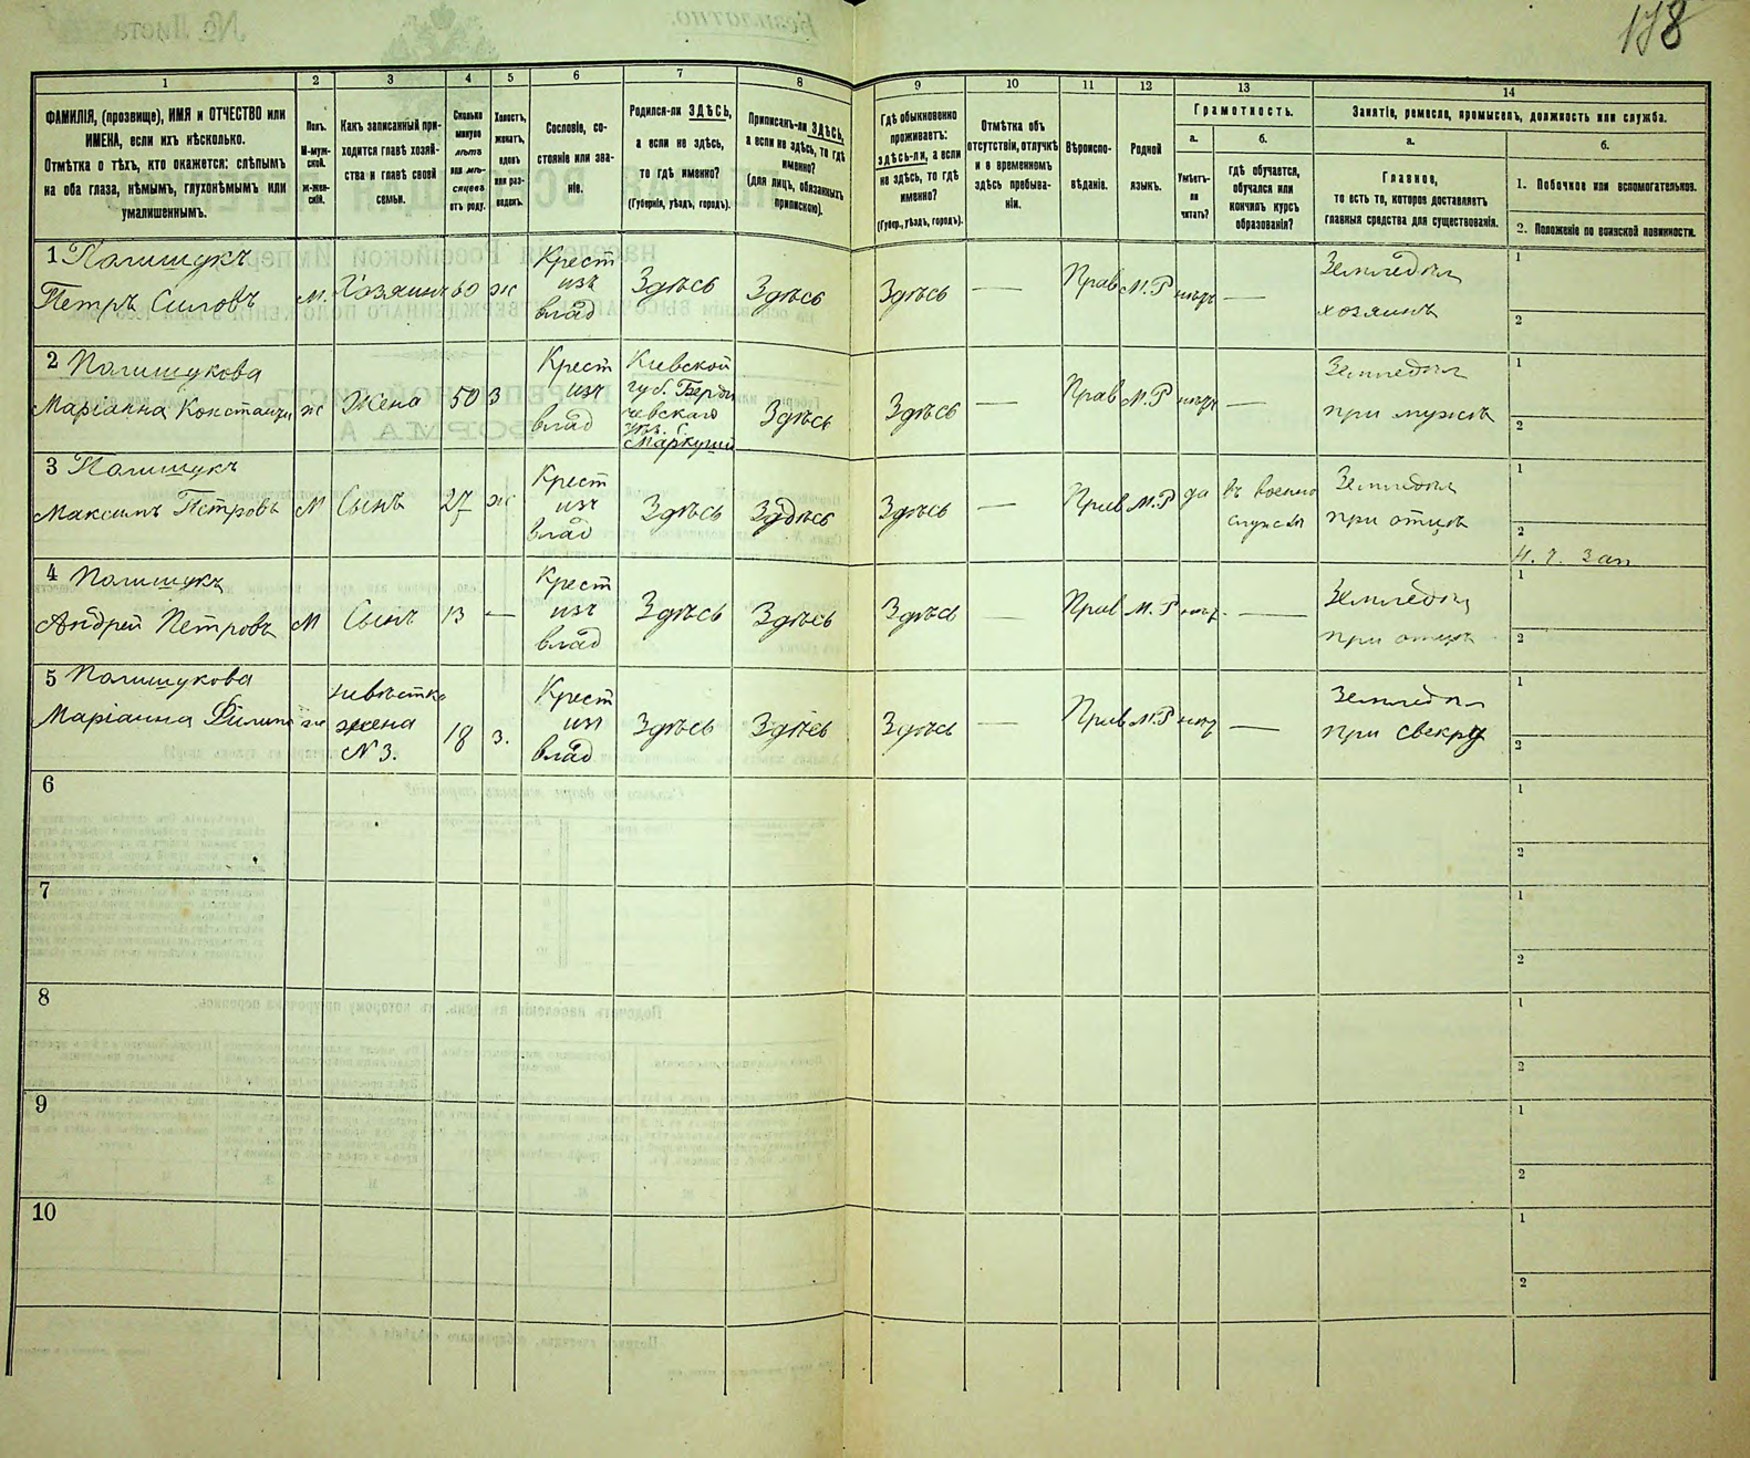 178
1
2
3
4
5
6
7
8
9
10
11
12
13
14
ФАМИЛІЯ, (прозвище), ИМЯ и ОТЧЕСТВО или
ИМЕНА, если ихъ нѣсколько.
Отмѣтка о тѣхъ, кто окажется: слѣпымъ
на оба глаза, нѣмымъ, глухонѣмымъ или
умалишеннымъ.
Полъ.
М-муж-
ской.
Ж-жен-
скій.
Какъ записанный при-
ходится главѣ хозяй-
ства и главѣ своей
семьи.
Сколько
минуло
лѣтъ
или мѣ-
сяцевъ
отъ роду.
Холостъ,
женатъ,
вдовъ
или раз-
веденъ.
Сословіе, со-
стояніе или зва-
ніе.
Родился-ли ЗДѢСЬ,
а если не здѣсь,
то гдѣ именно?
(Губернія, уѣздъ, городъ).
Приписанъ-ли ЗДѢСЬ,
а если не здѣсь, то гдѣ
именно?
(для лицъ, обязанныхъ
припискою).
Гдѣ обыкновенно
проживаетъ:
ЗДѢСЬ-ли, а если
не здѣсь, то гдѣ
именно?
(Губер., уѣздъ, городъ).
Отмѣтка объ
отсутствіи, отлучкѣ
и о временномъ
здѣсь пребыва-
ніи.
Вѣроиспо-
вѣданіе.
Родной
языкъ.
Грамотность.
а.
Умѣетъ-
ли
читать?
б.
гдѣ обучается,
обучался или
кончилъ курсъ
образованія?
Занятіе, ремесло, промыселъ, должность или служба.
а.
Главное,
то есть то, которое доставляетъ
главныя средства для существованія.
б.
1. Побочное или вспомогательное.
2. Положеніе по воинской повинности.
1 Полищукъ
Петръ Силовъ
м.
Хозяинъ
60
ж
Крест
изъ
влад
Здѣсь
Здѣсь
Здѣсь
—
Прав
М.Р
нѣтъ
—
Земледѣл
хозяинъ
1
2
2 Полищукова
Маріанна
ж
Жена
50
З
Крест
изъ
влад
Кіевской
губ. Берди
чевскаго
Здѣсь
Здѣсь
—
Прав
М.Р
нѣтъ
—
Земледѣл
при мужѣ
1
2
3 Полищукъ
Максимъ Петровъ
М
Сынъ
27
ж
Крест
изъ
влад
Здѣсь
Здѣсь
Здѣсь
—
Прав
М.Р
да
въ военно
службѣ
Земледѣл
при отцѣ
1
2
4 Полищукъ
Андрей Петровъ
М
Сынъ
13
—
Крест
изъ
влад
Здѣсь
Здѣсь
Здѣсь
—
Прав
М.Р
нѣт.
—
Земледѣл
при отцѣ
1
2
5 Полищукова
Маріанна
ж
невѣстка
жена
№ 3.
18
З.
Крест
изъ
влад
Здѣсь
Здѣсь
Здѣсь
—
Прав
М.Р
нѣт
—
Земледѣл
при свекру
1
2
6
1
2
7
1
2
8
1
2
9
1
2
10
1
2